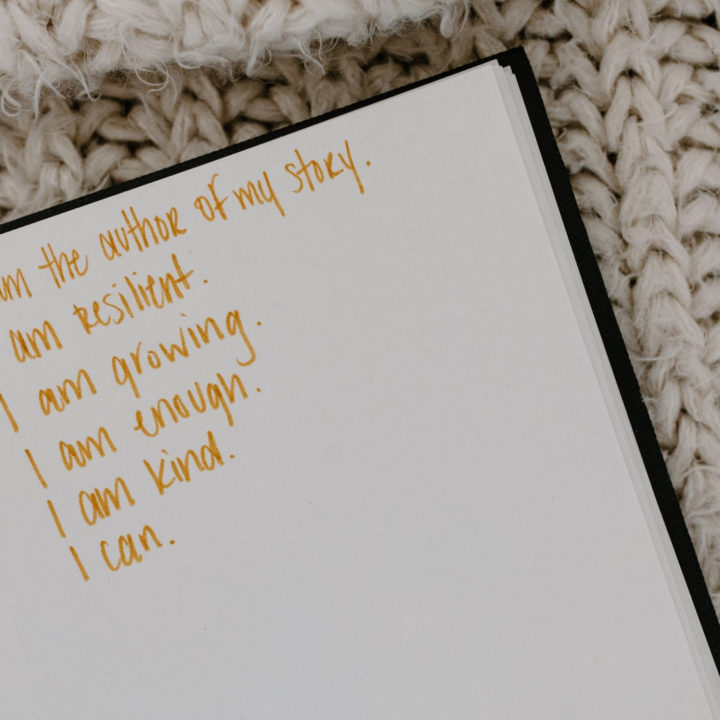 am the author of my story.
am resilient.
I am growing.
I am enough.
I am kind.
I can.